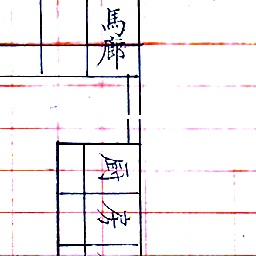 馬廊
厨房